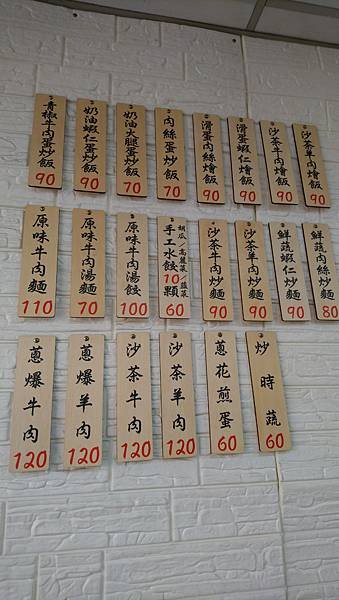 青椒牛肉蛋炒飯 90
奶油蝦仁蛋炒飯 90
奶油火腿蛋炒飯 70
肉絲蛋炒飯 70
滑蛋肉絲燴飯 90
滑蛋蝦仁燴飯 90
沙茶牛肉燴飯 90
沙茶羊肉燴飯 90
原味牛肉麵 110
原味牛肉湯麵 70
原味牛肉湯餃 100
胡瓜/高麗菜/韮菜
手工水餃10顆 60
沙茶牛肉炒麵 90
沙茶羊肉炒麵 90
鮮蔬蝦仁炒麵 90
鮮蔬肉絲炒麵 80
蔥爆牛肉 120
蔥爆羊肉 120
沙茶牛肉 120
沙茶羊肉 120
蔥花煎蛋 60
炒時蔬 60